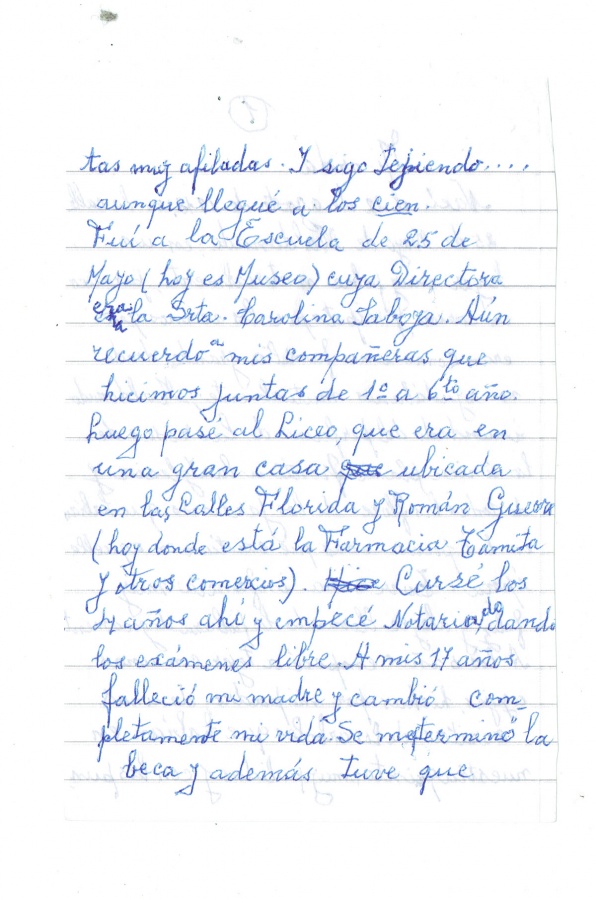 tas muy afiladas. Y sigo tejiendo....
aunque llegué a los cien.
Fuí a la Escuela de 25 de
Mayo (hoy es Museo) cuya Directora
era la Srta. Carolina Taboza. Aún
recuerdo a mis compañeras que
hicimos juntas de 1º a 6to año.
Luego pasé al Liceo, que era en
una gran casa ubicada
en las Calles Florida y Román Guerra
(hoy donde está la Farmacia Camita
y otros comercios). Cursé los
4 años ahí y empecé Notariado, dando
los exámenes libre. A mis 17 años
falleció mi madre y cambió com-
pletamente mi vida. Se me terminó la
beca y además tuve que